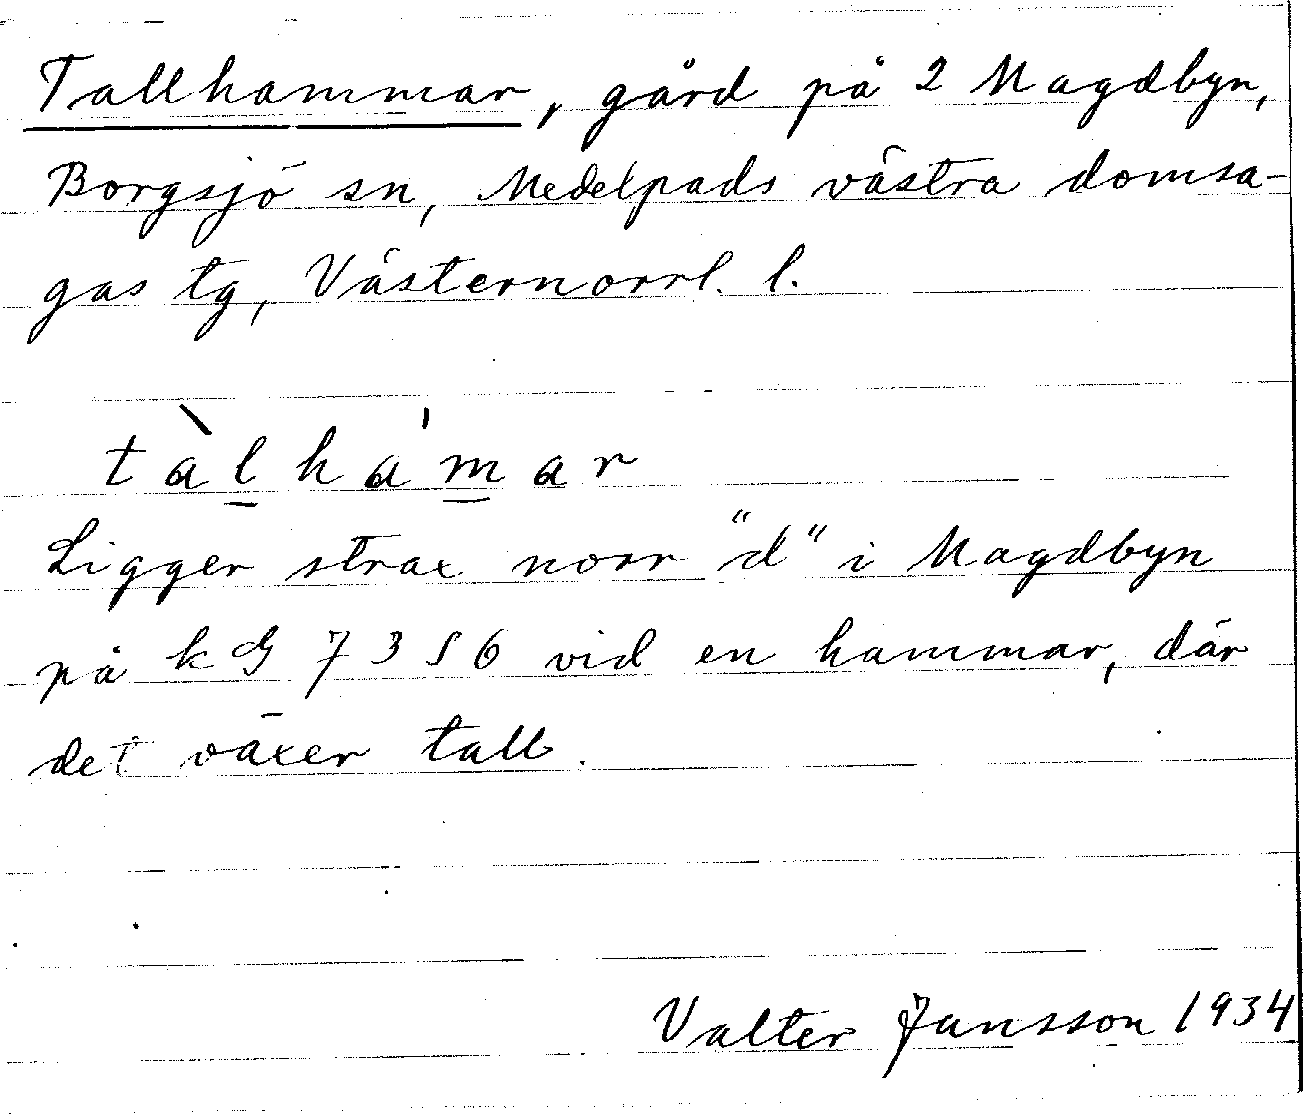 Tallhammar, gård på 2 Magdbyn,
Borgsjö sn, Medelpads västra domsa-
gas tg, Västernorrl. l.
tàlha'mar
Ligger strax norr "d" i Magdbyn
på kG 7356 vid en hammar, där
det växer tall.
Valter Jansson 1934